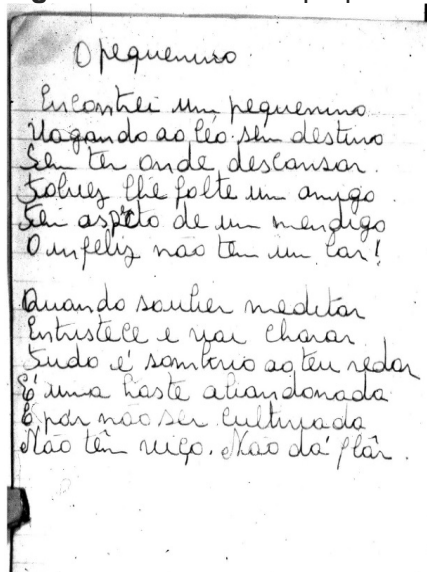 O pequenino
Encontrei um pequenino
Vagando ao léo sem destino
Sem ter onde descansar.
Talvez lhe falte um amigo
Tem aspéto de um mendigo
O infeliz não tem um lar!
Quando souber meditar
Entristece e vai chorar
Tudo é sombrio ao teu redor
É uma haste abandonada
E por não ser cultivada
Não têm viço. Não dá flôr.